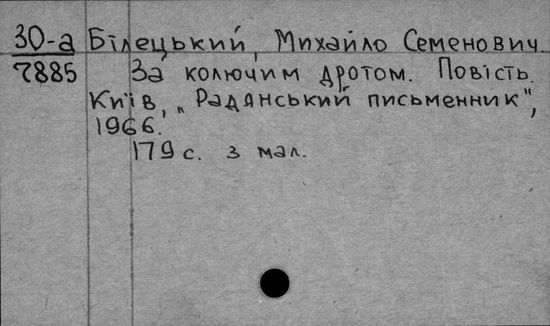 30-а Білецький, Михайло Семенович.
7885 За колючим дротом. Повість.
Київ, „Радянський письменник",
1966.
179 с. з мал.